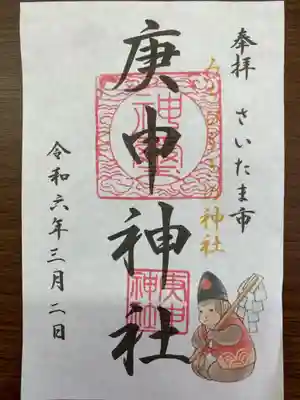 奉拝 さいたま市
神社
庚申神社
庚申
神社
令和六年三月二日